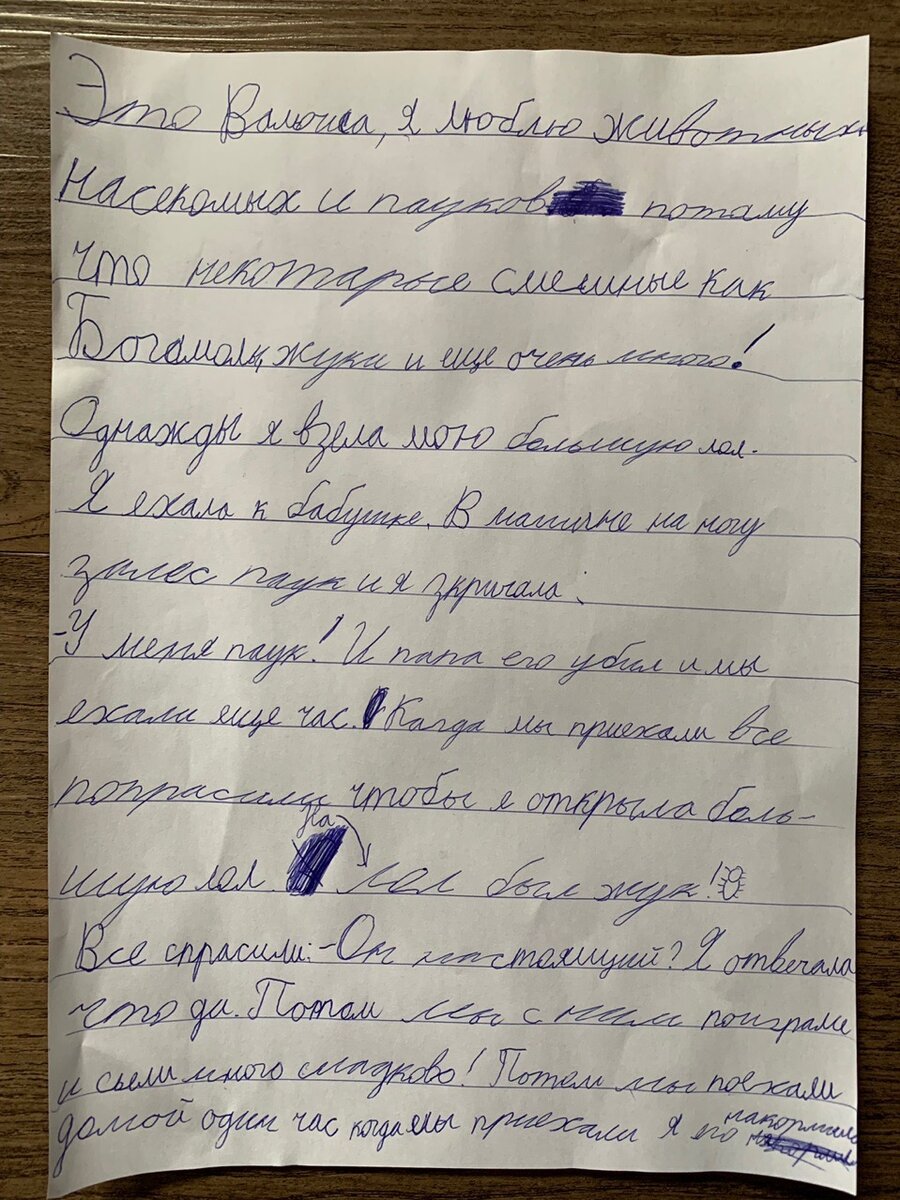 Это Валюша, я люблю животных.
Насекомых и пауков потаму
что некотарые смешные как
Богамолы, жуки и еще очень много!
Однажды я взела мою большую лол.
Я ехала к бабушке. В машине на ногу
залес паук и я зкричала:
-У меня паук! И папа его убил и мы
ехали еще час. Кагда мы приехали все
попрасили чтобы я открыла боль-
шую лол. На лол был жук!
Все спрасили: -Он настоящий? Я отвечала
что да. Потом мы с ним поиграле
и сьели много сладково! Потом мы поехали
домой один час когда мы приехали я его накормила